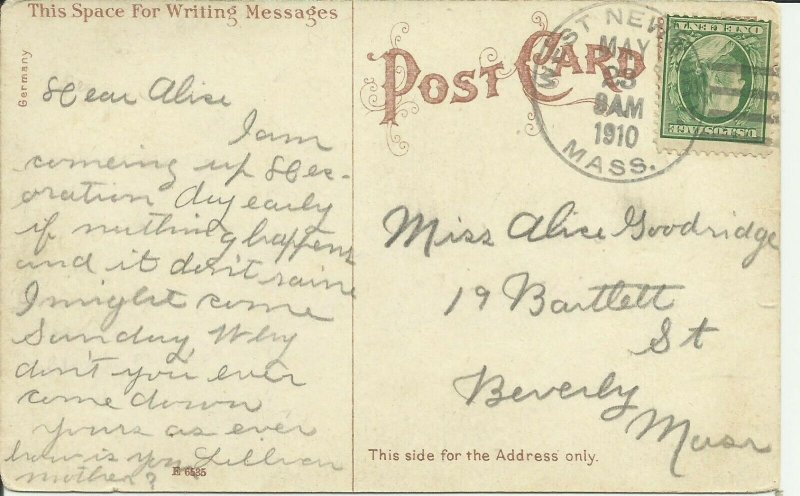 This Space For Writing Messages
Germany
Dear Alice
I am
comeing up Dec-
oration Day early
if nothing happens
and it don't raine
I might come
Sunday Why
don't you ever
come down
yours as ever
how is you Lillian
mother?
E 6535
POST CARD
WEST NEW
MAY
23
8AM
1910
MASS.
U.S. POSTAGE
ONE CENT
Miss Alice Goodridge
19 Bartlett
St
Beverly
Mass
This side for the Address only.